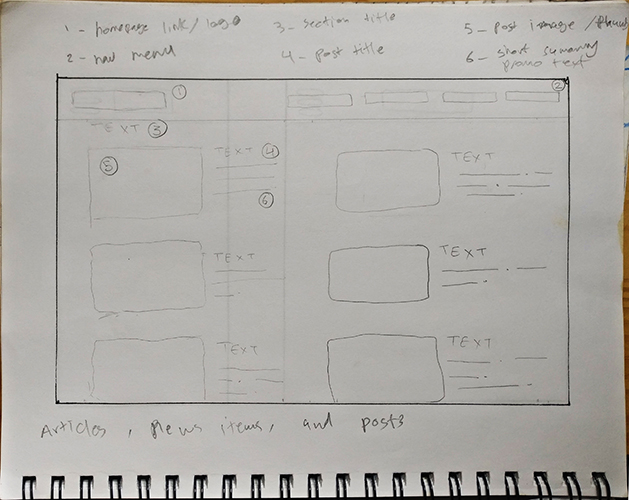 1 - homepage link/logo
2 - nav menu
3 - section title
4 - Post title
5 - Post image /
6 - short summary
promo text
1
2
TEXT 3
5
TEXT 4
6
TEXT
TEXT
TEXT
TEXT
TEXT
Articles, News items, and posts